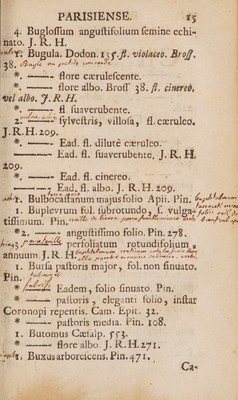 PARISIENSE. 15
4. Buglossum angustifolium semine echi-
nato. J. R. H.
1. Bugula. Dodon. 135. fl. violaceo. Bross.
38.
*. —— flore cærulescente.
*. —— flore albo. Bross 38. fl. cinereo,
vel albo. J. R. H.
*. —— fl suaverubente.
2. —— sylvestris, villosa, fl. cæruleo.
J. R. H 209.
*. —— Ead. fl. dilutè cæruleo.
*. —— Ead. fl. suaverubente, J. R. H.
209.
*. —— Ead. fl. cinereo.
—— Ead. fl. albo. J. R. H. 209.
1. Bulbocastanum majus folio Apii. Pin.
1. Buplevrum fol. subrotundo, s. vulga-
tissimum. Pin.
*2. —— angustissimo folio. Pin. 278.
—— perfoliatum rotundifolium,
annuum. J. R. H
1. Bursa pastoris major, fol. non sinuato.
Pin.
* —— Eadem, folio sinuato. Pin.
* —— pastoris, eleganti folio, instar
Coronopi repentis. Cam. Epit. 32.
* —— pastoris media. Pin. 108.
1. Butomus Cæsalp. 553.
* —— flore albo. J. R. H. 271.
1. Buxus arborescens. Pin. 471.
Ca-